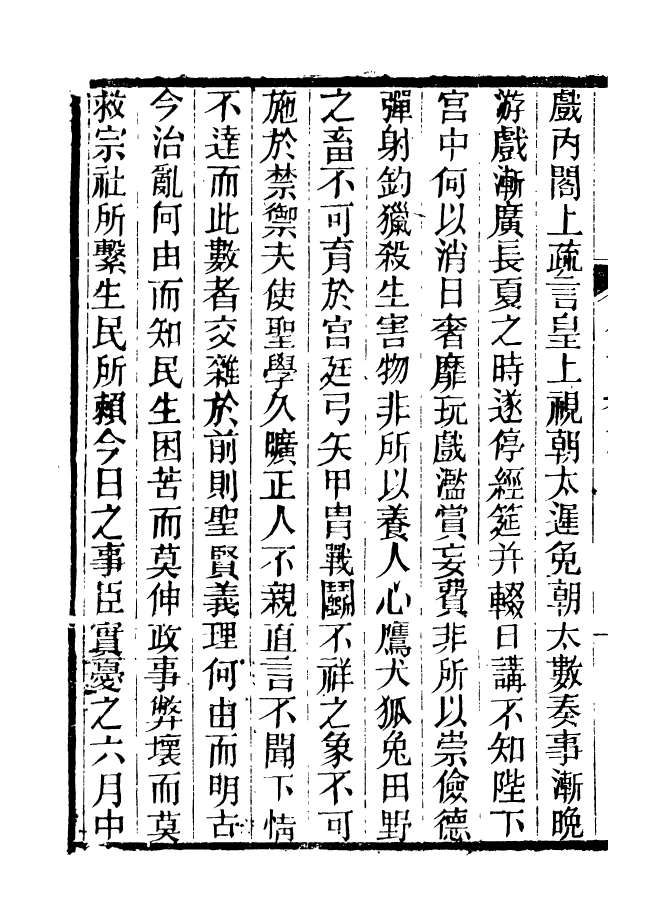 戲內閣上疏言皇上視朝太遲免朝太數奏事漸晚
游戲漸廣長夏之時遂停經筵并輟日講不知陛下
宮中何以消日奢靡玩戲濫賞妄費非所以崇儉德
彈射釣獵殺生害物非所以養人心鷹犬狐兔田野
之畜不可育於宮廷弓矢甲冑戰鬭不祥之象不可
施於禁禦夫使聖學久曠正人不親直言不聞下情
不達而此數者交雜於前則聖賢義理何由而明古
今治亂何由而知民生困苦而莫伸政事弊壞而莫
救宗社所繫生民所賴今日之事臣實憂之六月中